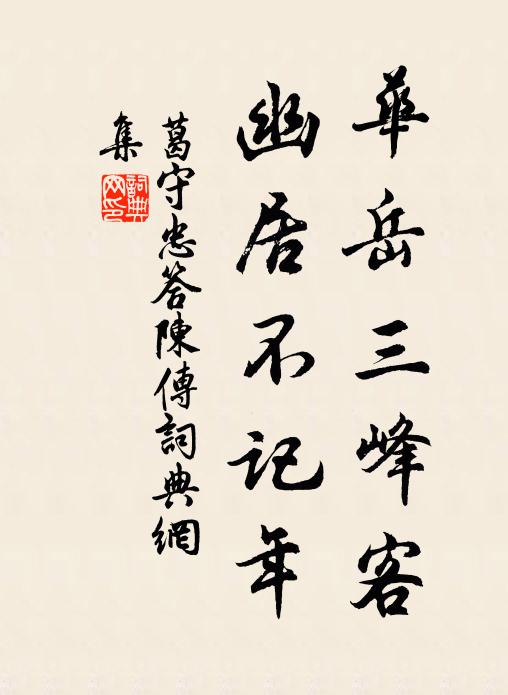 華岳三峰客
幽居不記年
葛守忠答陳傳詞典網
集
詞典
网印